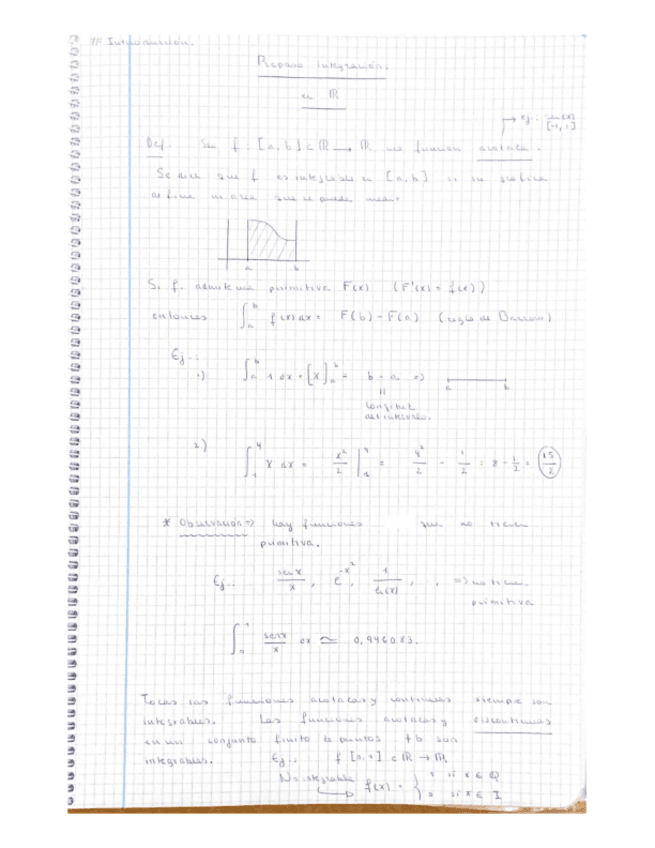 1º Introducción.
Repaso integración.
en ℝ
→ ej.: sen(x)
[-1, 1]
Def. Sea f: [a, b] ⊂ ℝ → ℝ una función acotada.
Se dice que f es integrable en [a, b] si su gráfica
define un área que se puede medir
a b
Si f. admite una primitiva F(x) (F'(x) = f(x))
entonces ∫_a^b f(x) dx = F(b) - F(a) (regla de Barrow)
Ej.:
1) ∫_a^b 1 dx = [x]_a^b = b - a =>
a b
||
longitud
del intervalo.
2) ∫_1^4 x dx = x²/2 |_1^4 = 4²/2 - 1/2 = 8 - 1/2 = 15/2
* Observación => hay funciones que no tienen
primitiva.
Ej.: senx/x, e^-x², 1/ln(x), , => no tienen
primitiva
∫_0^1 senx/x dx ≃ 0,946083.
Todas las funciones acotadas y continuas siempre son
integrables. Las funciones acotadas y discontinuas
en un conjunto finito de puntos tb son
integrables. Ej.: f [0, 1] ⊂ ℝ → ℝ
No integrable → f(x) = { 1 si x ∈ ℚ
0 si x ∈ I